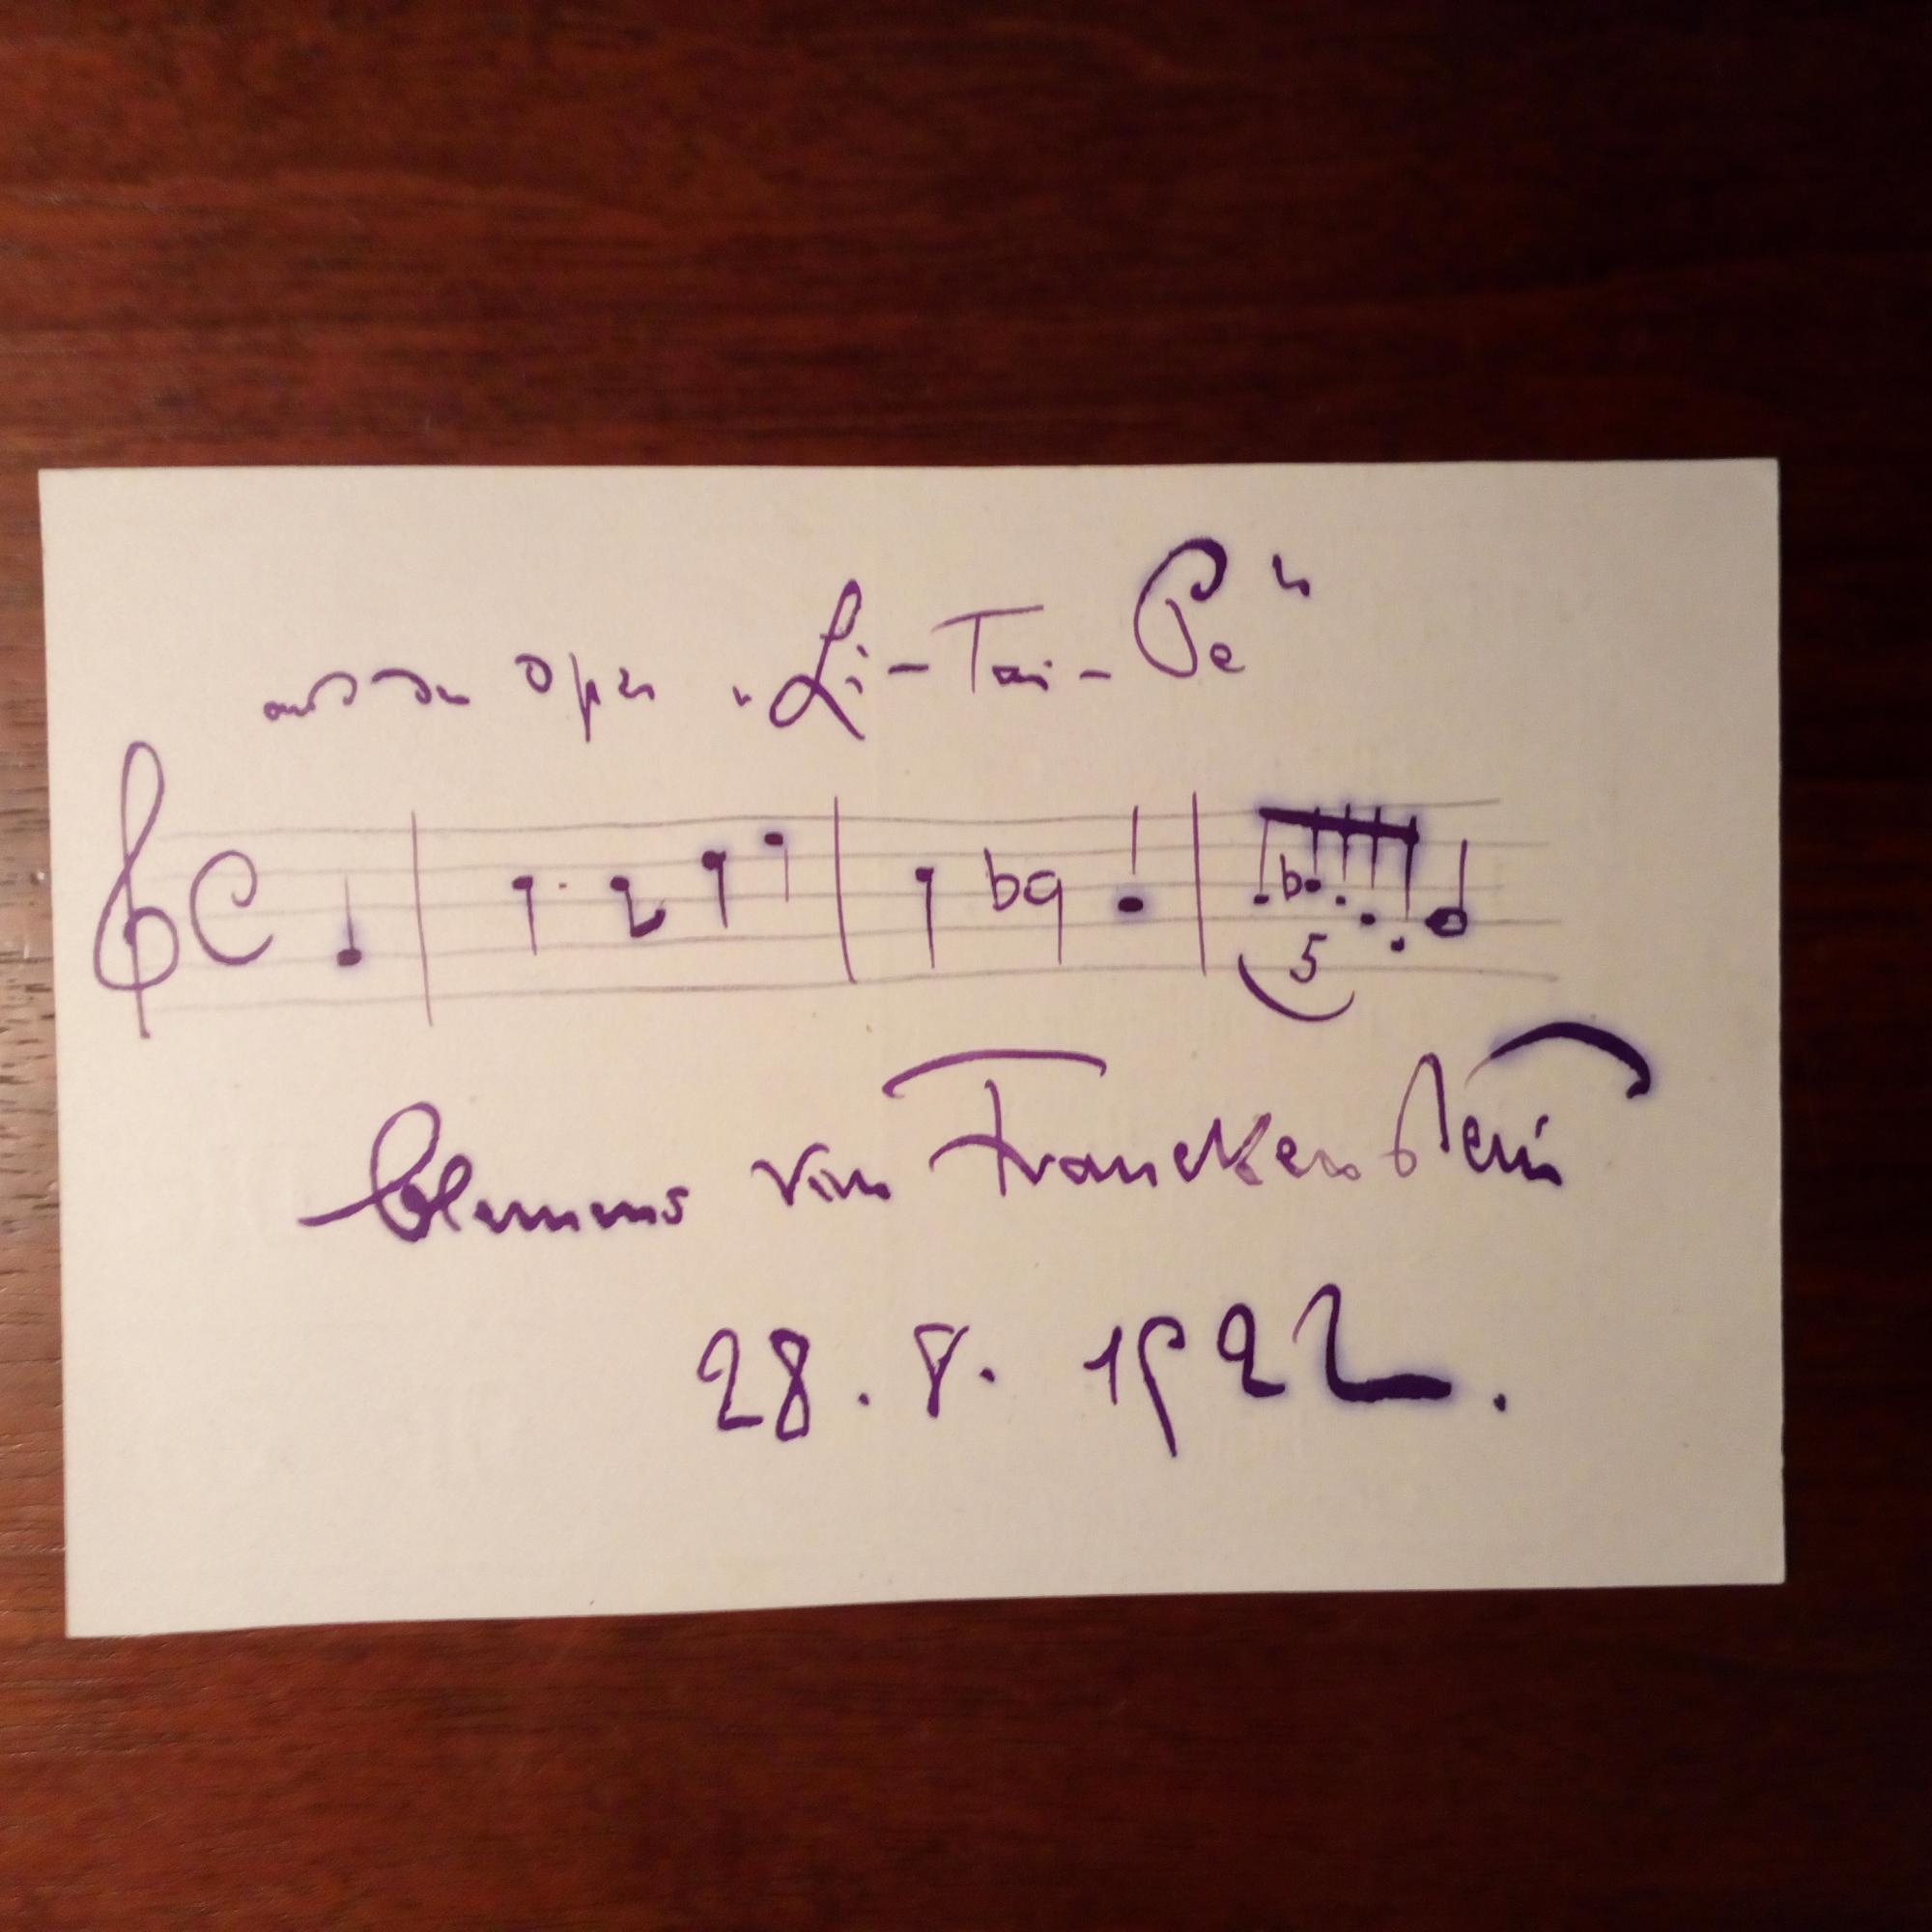 aus der Oper „Li-Tai-Pe"
5
Clemens von Franckenstein
28. 8. 1922.